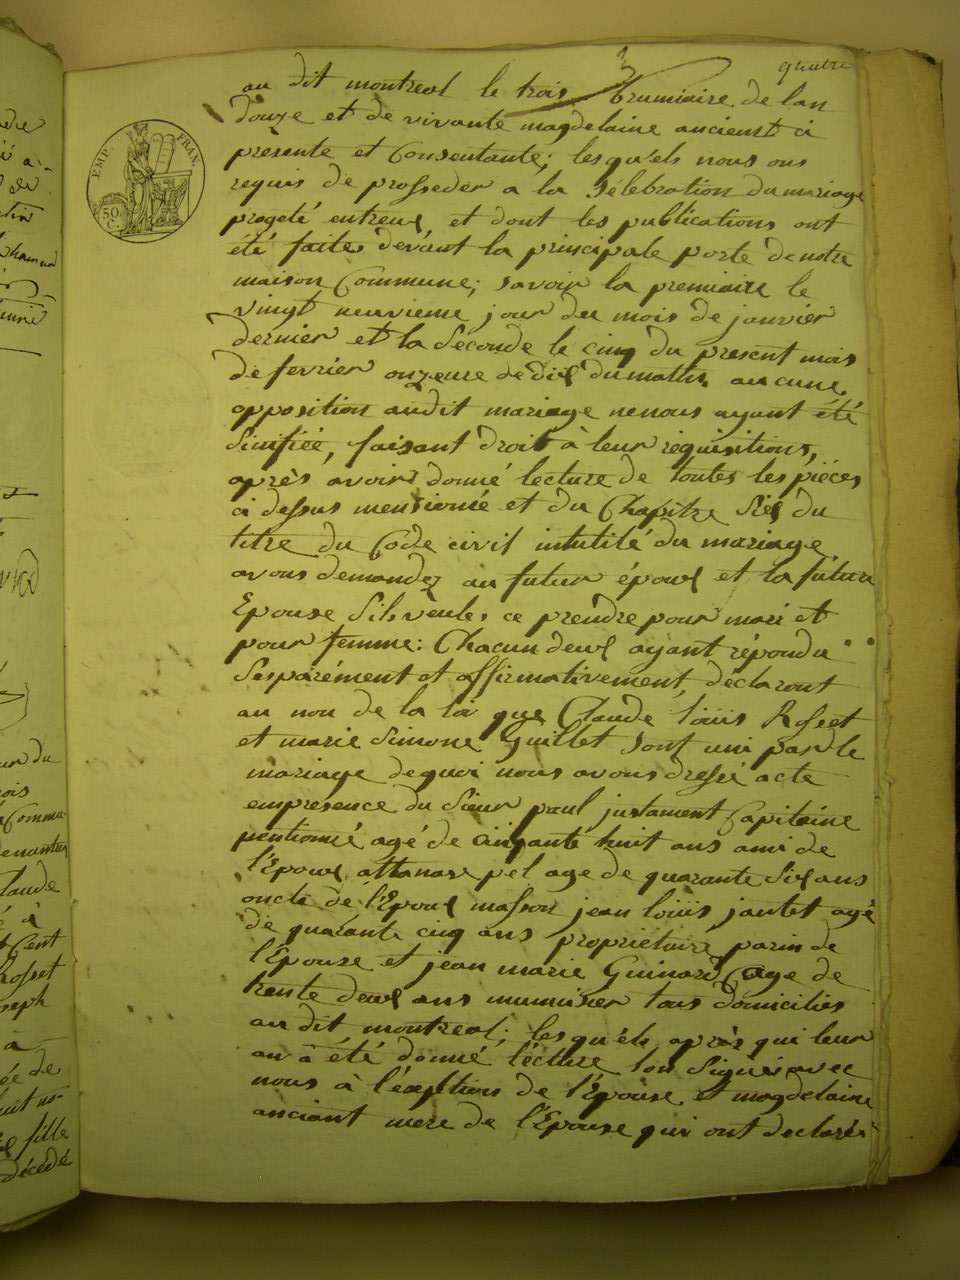 quatre
3
au dit montreal le trois brumiaire de lan
douze et de vivante magdelaine ancient ci
presente et Consentante; lesquels nous ons
requis de prosseder a la célébration du mariage
progeté entreux et dont les publications ont
été faites devant la principale porte de notre
maison Commune; savoir la premiaire le
vingt neuvieme jour du mois de janvier
dernier et la Seconde le cinq du present mois
de fevrier de dix du matin aucune
opposition audit mariage ne nous ayant été
Sinifiée, faisant droit à leur requisitions,
après avoir donné lecture de toutes les pièces
ci dessus mentionnée et du Chapitre Six du
titre du Code civil intitilé du mariage
avous demandez au futur époux et la future
Epouse Sils veules ce prendre pour mari et
pour femme: Chacun deux ayant répondu
Sesparément et affirmativement, déclaront
au non de la loi que Claude loüis Rosset
et marie Simone Guillet sont uni par le
mariage dequoi nous avous dressé acte
empresence du Sieur paul justament Capitaine
pentionné agé de cinquante huit ans ami de
l'Epoux, attanase pel age de quarante Six ans
oncle de l'Epoux masson jean loüis jantet agé
de quarante cinq ans proprietaire parin de
l'Epouse et jean marie Guinard age de
trente deux ans munuisier tous domicilies
au dit montreal; lesquels après qui leur
an à été donné lécture lon Signés avec
nous à l'éxeption de l'Epouse et magdelaine
anciant mere de l'Epouse qui ont declarés
EMP. FRAN.
50.
C.